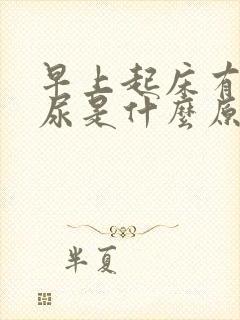 早上起床有
尿是什麼原
半夏